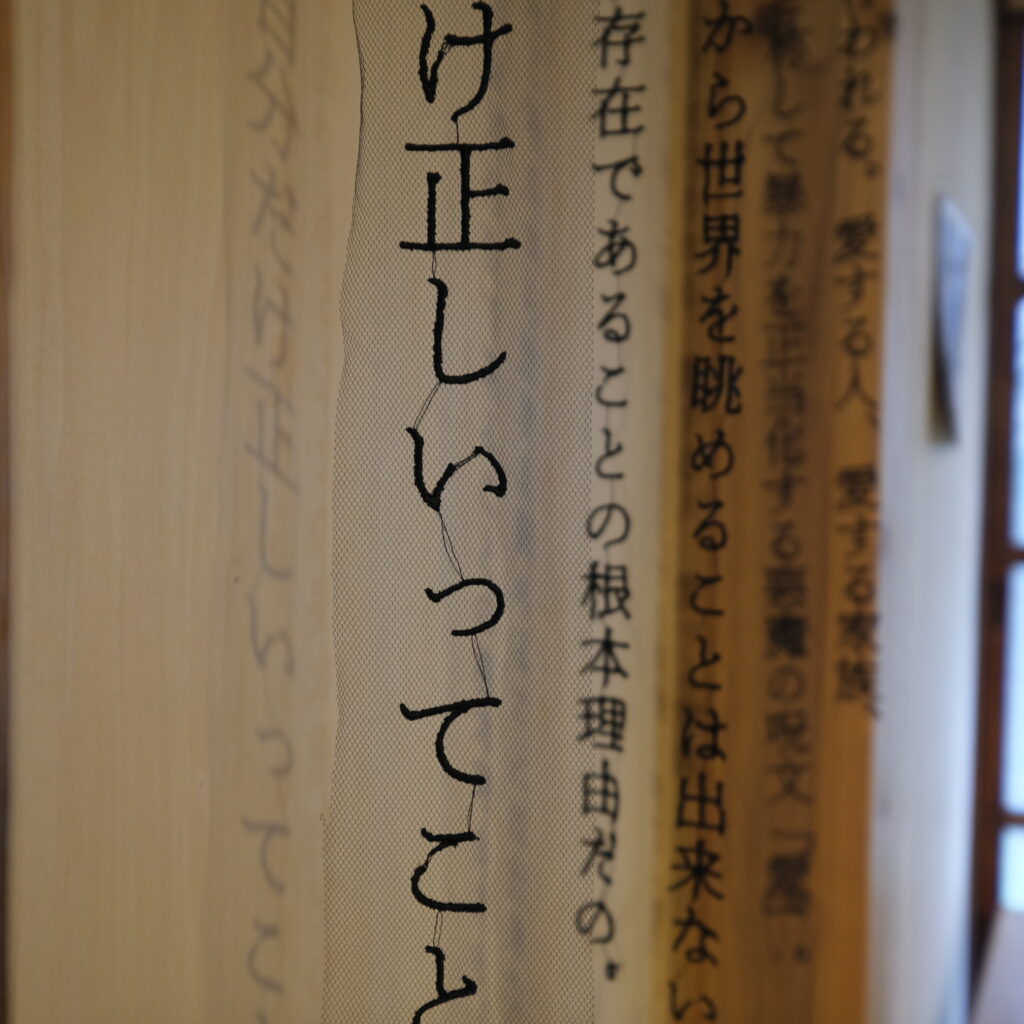 われる。愛する人、愛する家族、
して暴力を正当化する悪魔の呪文
から世界を眺めることは出来ない
存在であることの根本理由だの、
け正しいってこと